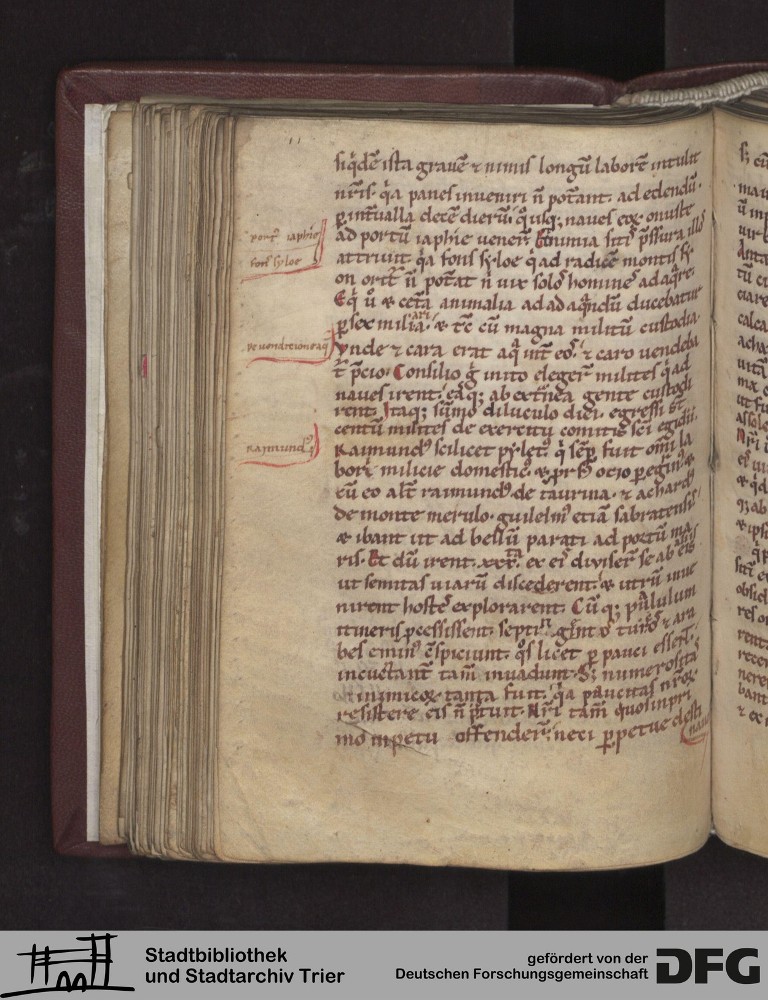 siq̇dē ista grauē ⁊ nimis longū laborē intulit
nr̄is. q̇a panes inueniri n̄ potant. ad edendū.
ꝑ intualla decē dierū. naues onuste
ad portū iaphie uener̄. Et nimia siti p̄ssura illos
attriuit. q̇a fons syloe q̇ ad radicē montis sy
on orit ū potat n̄ uix solos homines adaq̇re.
Eq̇ ⁊ cet̄a animalia ad adaq̇ndū ducebatur
ꝑ sex miliaria. ⁊ cū magna militū custodia
Vnde ⁊ cara erat aq̇ int eos. ⁊ caro uendeba
t̄ p̄cio. Consilio g̊ inito eleger̄ milites q̇ ad
naues irent. eaq; ab extnea gente custodi
rent. Itaq; sūmo diluculo diei egressi st̄
centū milites de exercitu comitis sci egidii.
Raimund⁹ scilicet pylet⁹. q̇ sēp̱ fuit omī la
bori milicie domestic⁹.
cū eo alt̄ raimund⁹ de taurina. ⁊ achard⁹
de monte merulo. guilelm⁹ etiā sabratensis
⁊ ibant ut ad bellū parati ad portū ma
ris. Et dū irent .xxx. ex eis diuiser̄ se ab aliis
ut semitas uiarū discederent. ⁊ utrū inue
nirent hostes explorarent. Cūq; paululum
itineris ꝓcessissent. septin gentos turcos ⁊ ara
bes emin⁹ c̄spiciunt. q̇s licet ꝑ pauci essent.
incuctant tam̄ inuadunt. S; numerosita
inimicoꝝ tanta fuit. q̇a paucitas nr̄oꝝ
resistere eis n̄ ptuit. Nr̄i tam̄ quos inpri
mo inpetu offender̄. neci ꝑpetue desti
nant
port⁹ iaphie
fons syloe
De uenditione aq̇
Raimund⁹
Stadtbibliothek
und Stadtarchiv Trier
gefördert von der
Deutschen Forschungsgemeinschaft
DFG